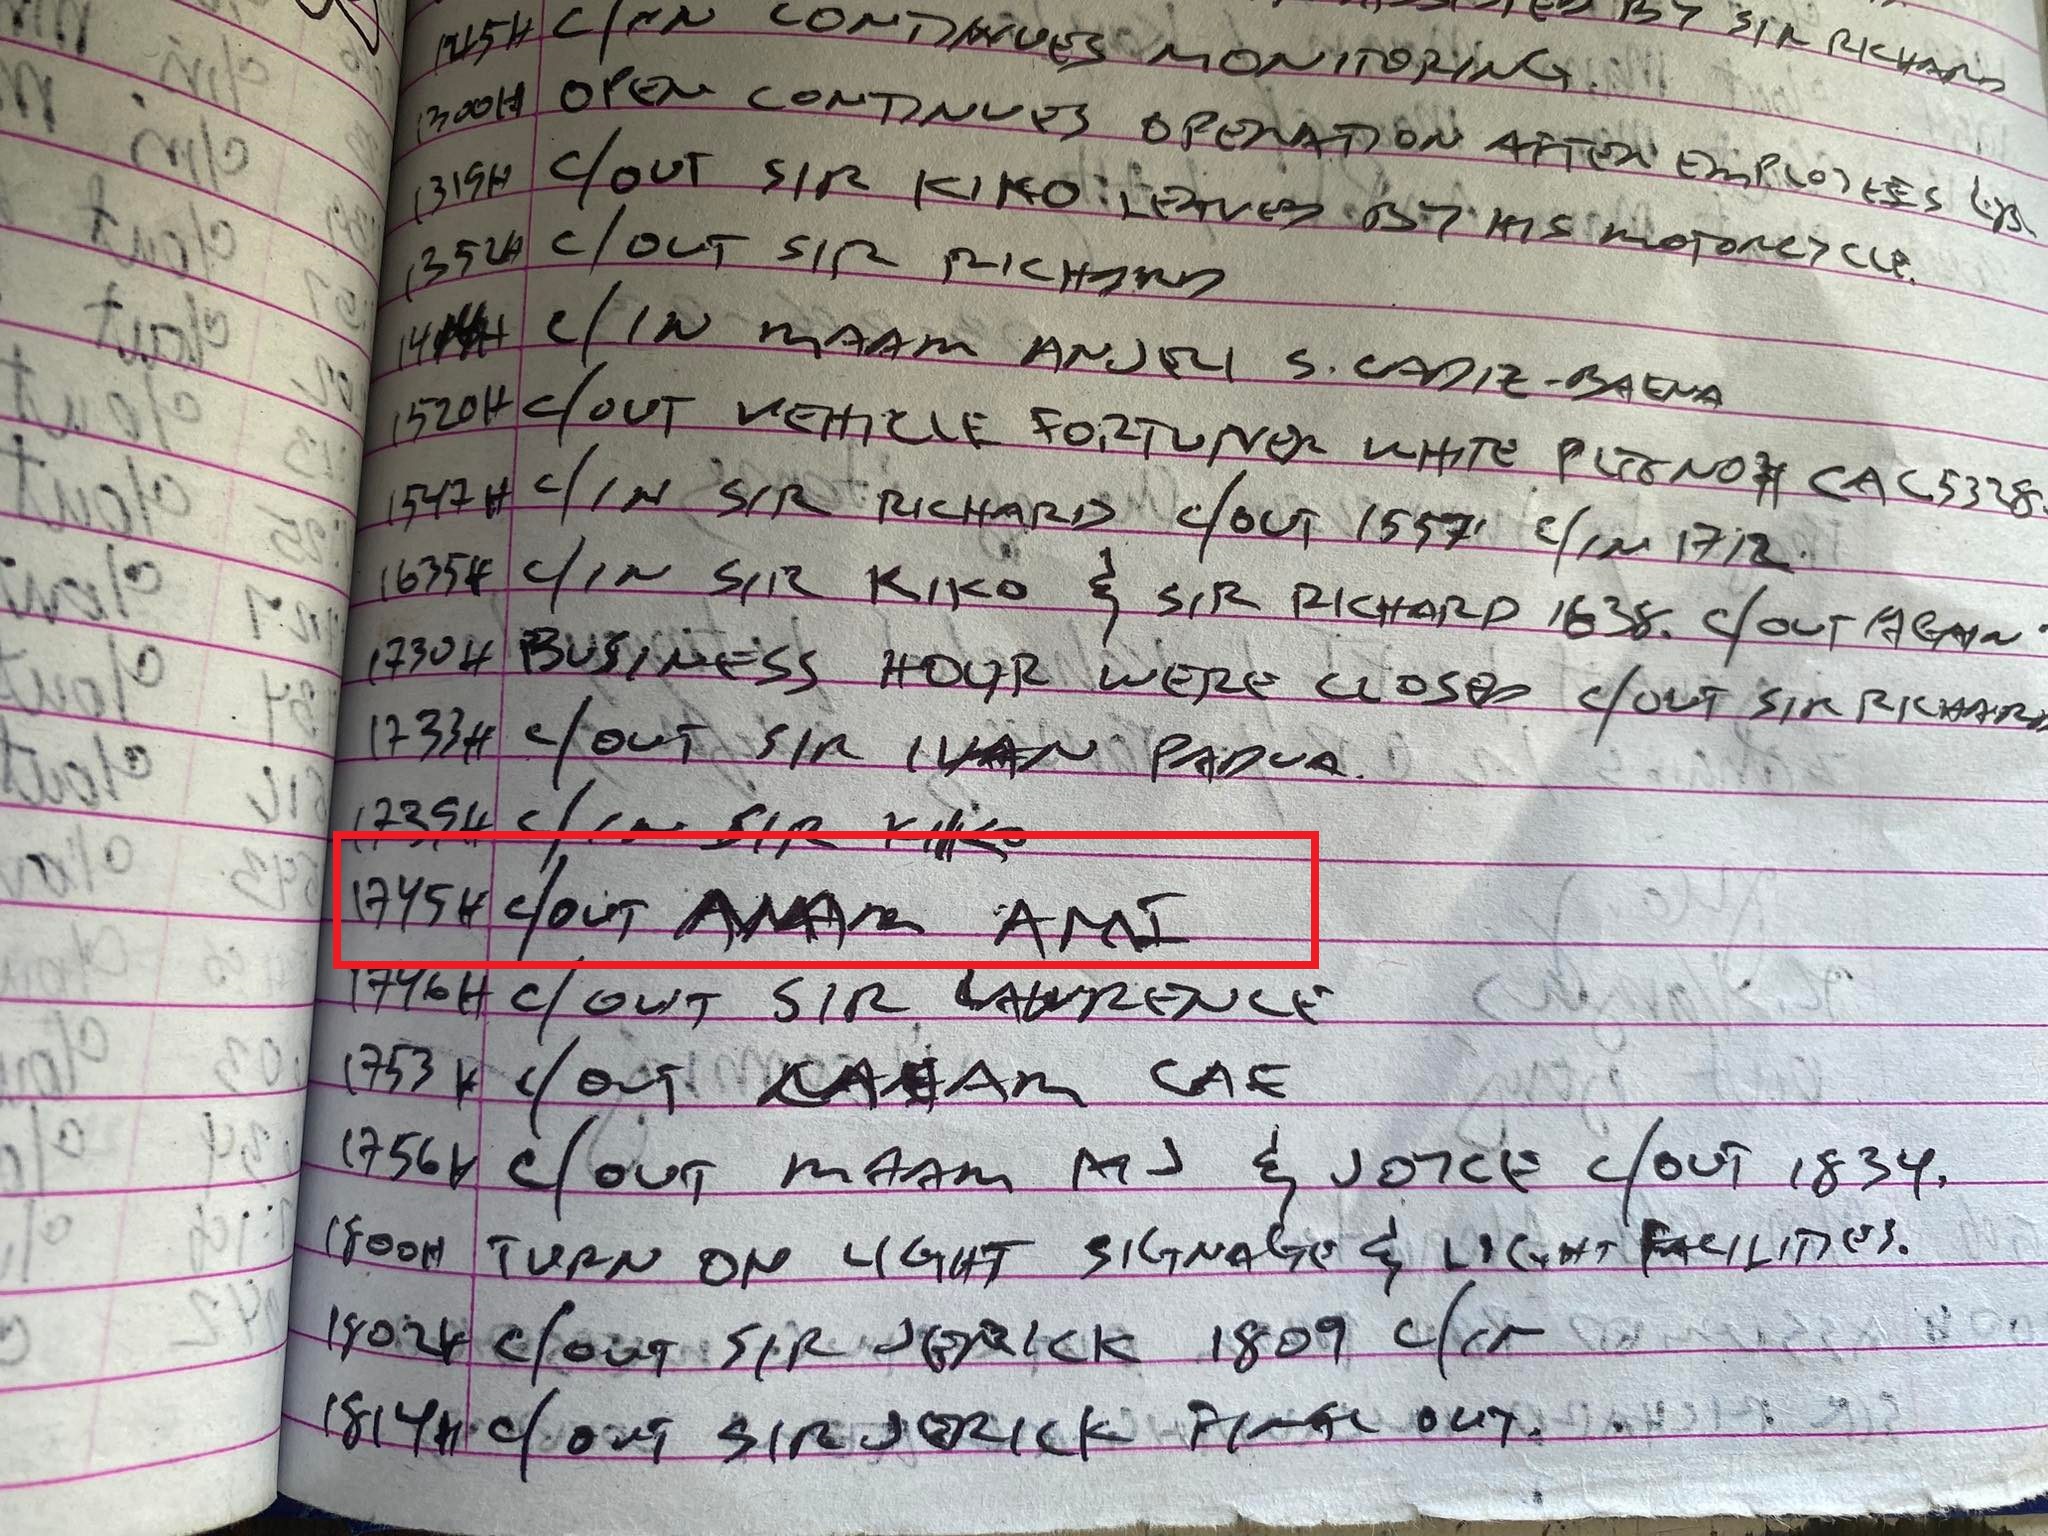 BY SIR RICHARD
1245H C/IN CONTINUES MONITORING.
1300H OPEN CONTINUES OPERATION AFTER EMPLOYEES
1319H C/OUT SIR KIKO LEAVES BY HIS MOTORCYCLE.
1352H C/OUT SIR RICHARD
C/IN MAAM ANJELI S. CADIZ-BAENA
1520H C/OUT VEHICLE FORTUNER WHITE PLTENO# CAC5328.
1547H C/IN SIR RICHARD C/OUT 1557 C/IN 1712.
1635H C/IN SIR KIKO & SIR RICHARD 1638. C/OUT AGAIN
1730H BUSINESS HOUR WERE CLOSED C/OUT SIR RICHARD
1733H C/OUT SIR IVAN PADUA.
1739H C/IN SIR KIKO
1745H C/OUT AMI
1746H C/OUT SIR LAWRENCE
1753H C/OUT CAE
1756H C/OUT MAAM MJ & JOYCE C/OUT 1834.
1800H TURN ON LIGHT SIGNAGE & LIGHT FACILITIES.
1802H C/OUT SIR JERICK 1809 C/IN
1814H C/OUT SIR JERICK FINAL OUT.